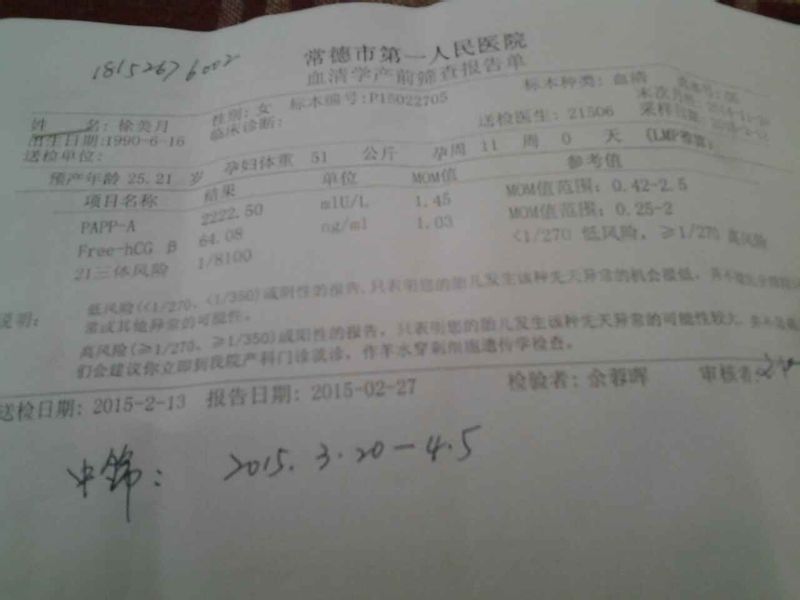 18152676002
常德市第一人民医院
血清学产前筛查报告单
姓 名：徐美月 性别：女 标本编号:P15022705 标本种类：血清
出生日期:1990-6-16 临床诊断： 送检医生：21506 采样日期：
送检单位：
预产年龄 25.21 岁 孕妇体重 51 公斤 孕周 11 周 0 天 (LMP推算)
项目名称 结果 单位 MOM值 参考值
PAPP-A 2222.50 mlU/L 1.45 MOM值范围：0.42-2.5
Free-hCG β 64.08 ng/ml 1.03 MOM值范围：0.25-2
21三体风险 1/8100 <1/270 低风险，≥1/270 高风险
说明： 低风险(<1/270、<1/350)或阴性的报告，只表明您的胎儿发生该种先天异常的机会很低，并不能
常或其他异常的可能性。
高风险(≥1/270、≥1/350)或阳性的报告，只表明您的胎儿发生该种先天异常的可能性较大，并不是
们会建议你立即到我院产科门诊就诊，作羊水穿刺细胞遗传学检查。
送检日期：2015-2-13 报告日期：2015-02-27 检验者：余蓉晖 审核者：
中筛： 2015.3.20-4.5